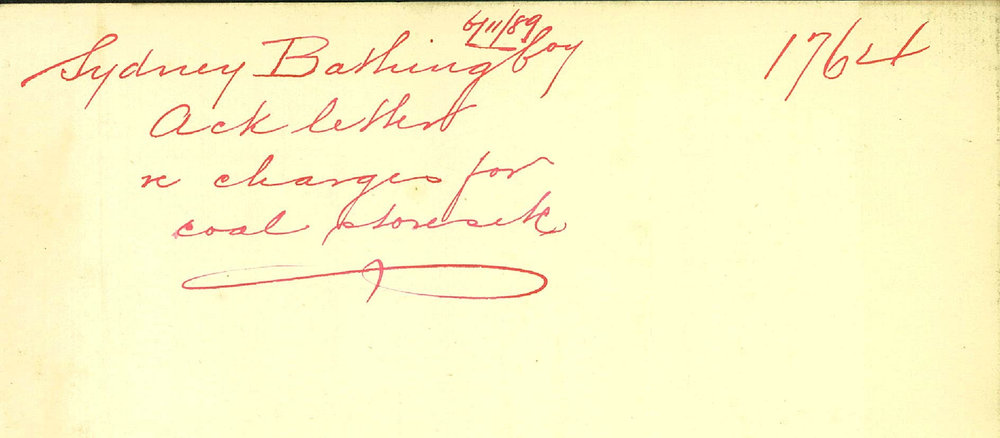 6/11/89
Sydney Bathing Coy 1764
Ack letter
re charges for
coal stores etc